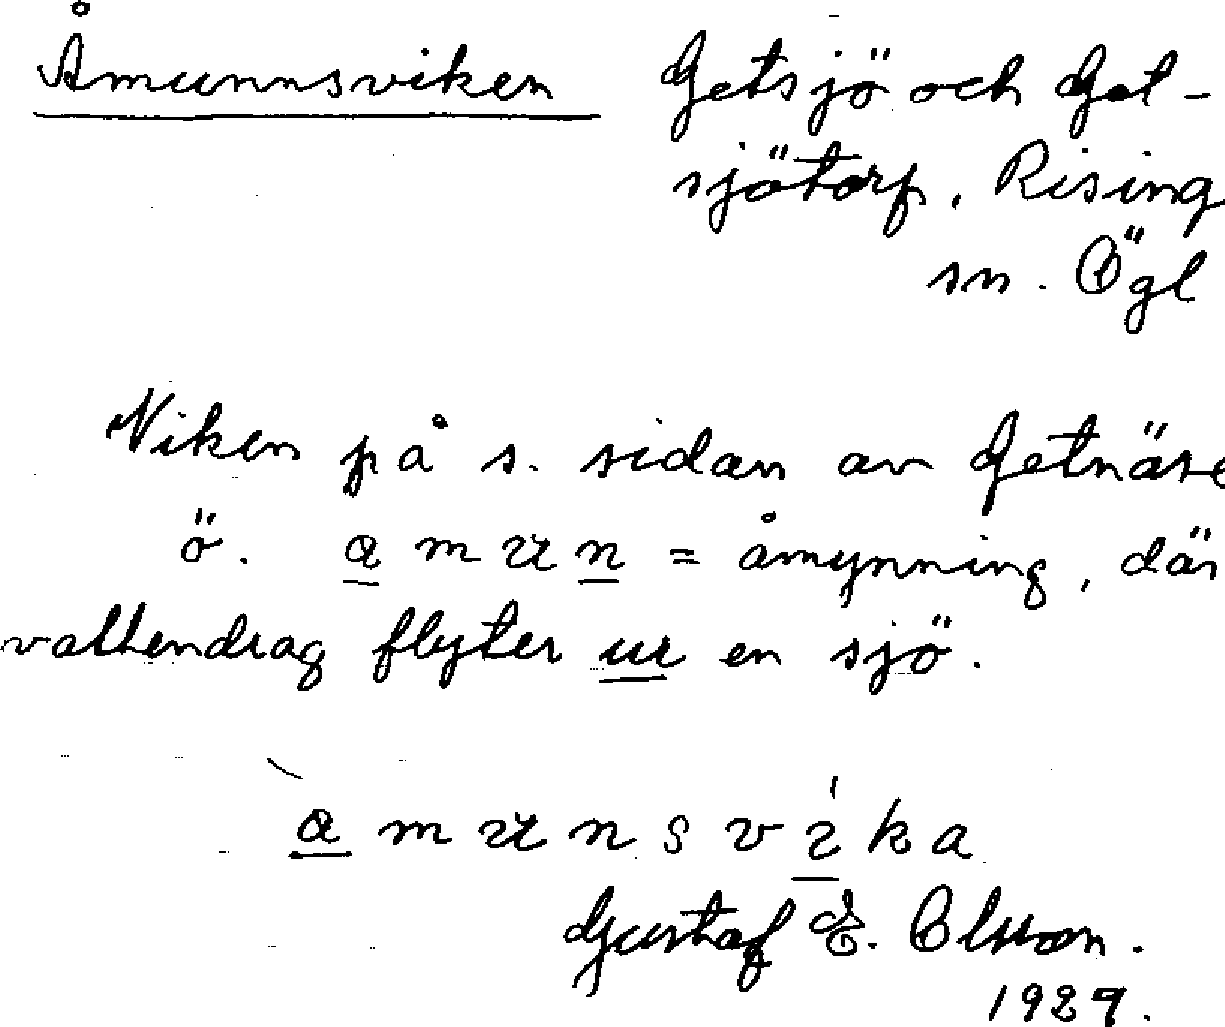 Åmunnsviken Getsjö och Get-
sjötorp, Rising
sn. Ögl
Viken på s. sidan av Getnäse
ö. a m u n = åmynning, där
vattendrag flyter ur en sjö.
a m u n s v i k a
Gustaf E. Olsson.
1929.